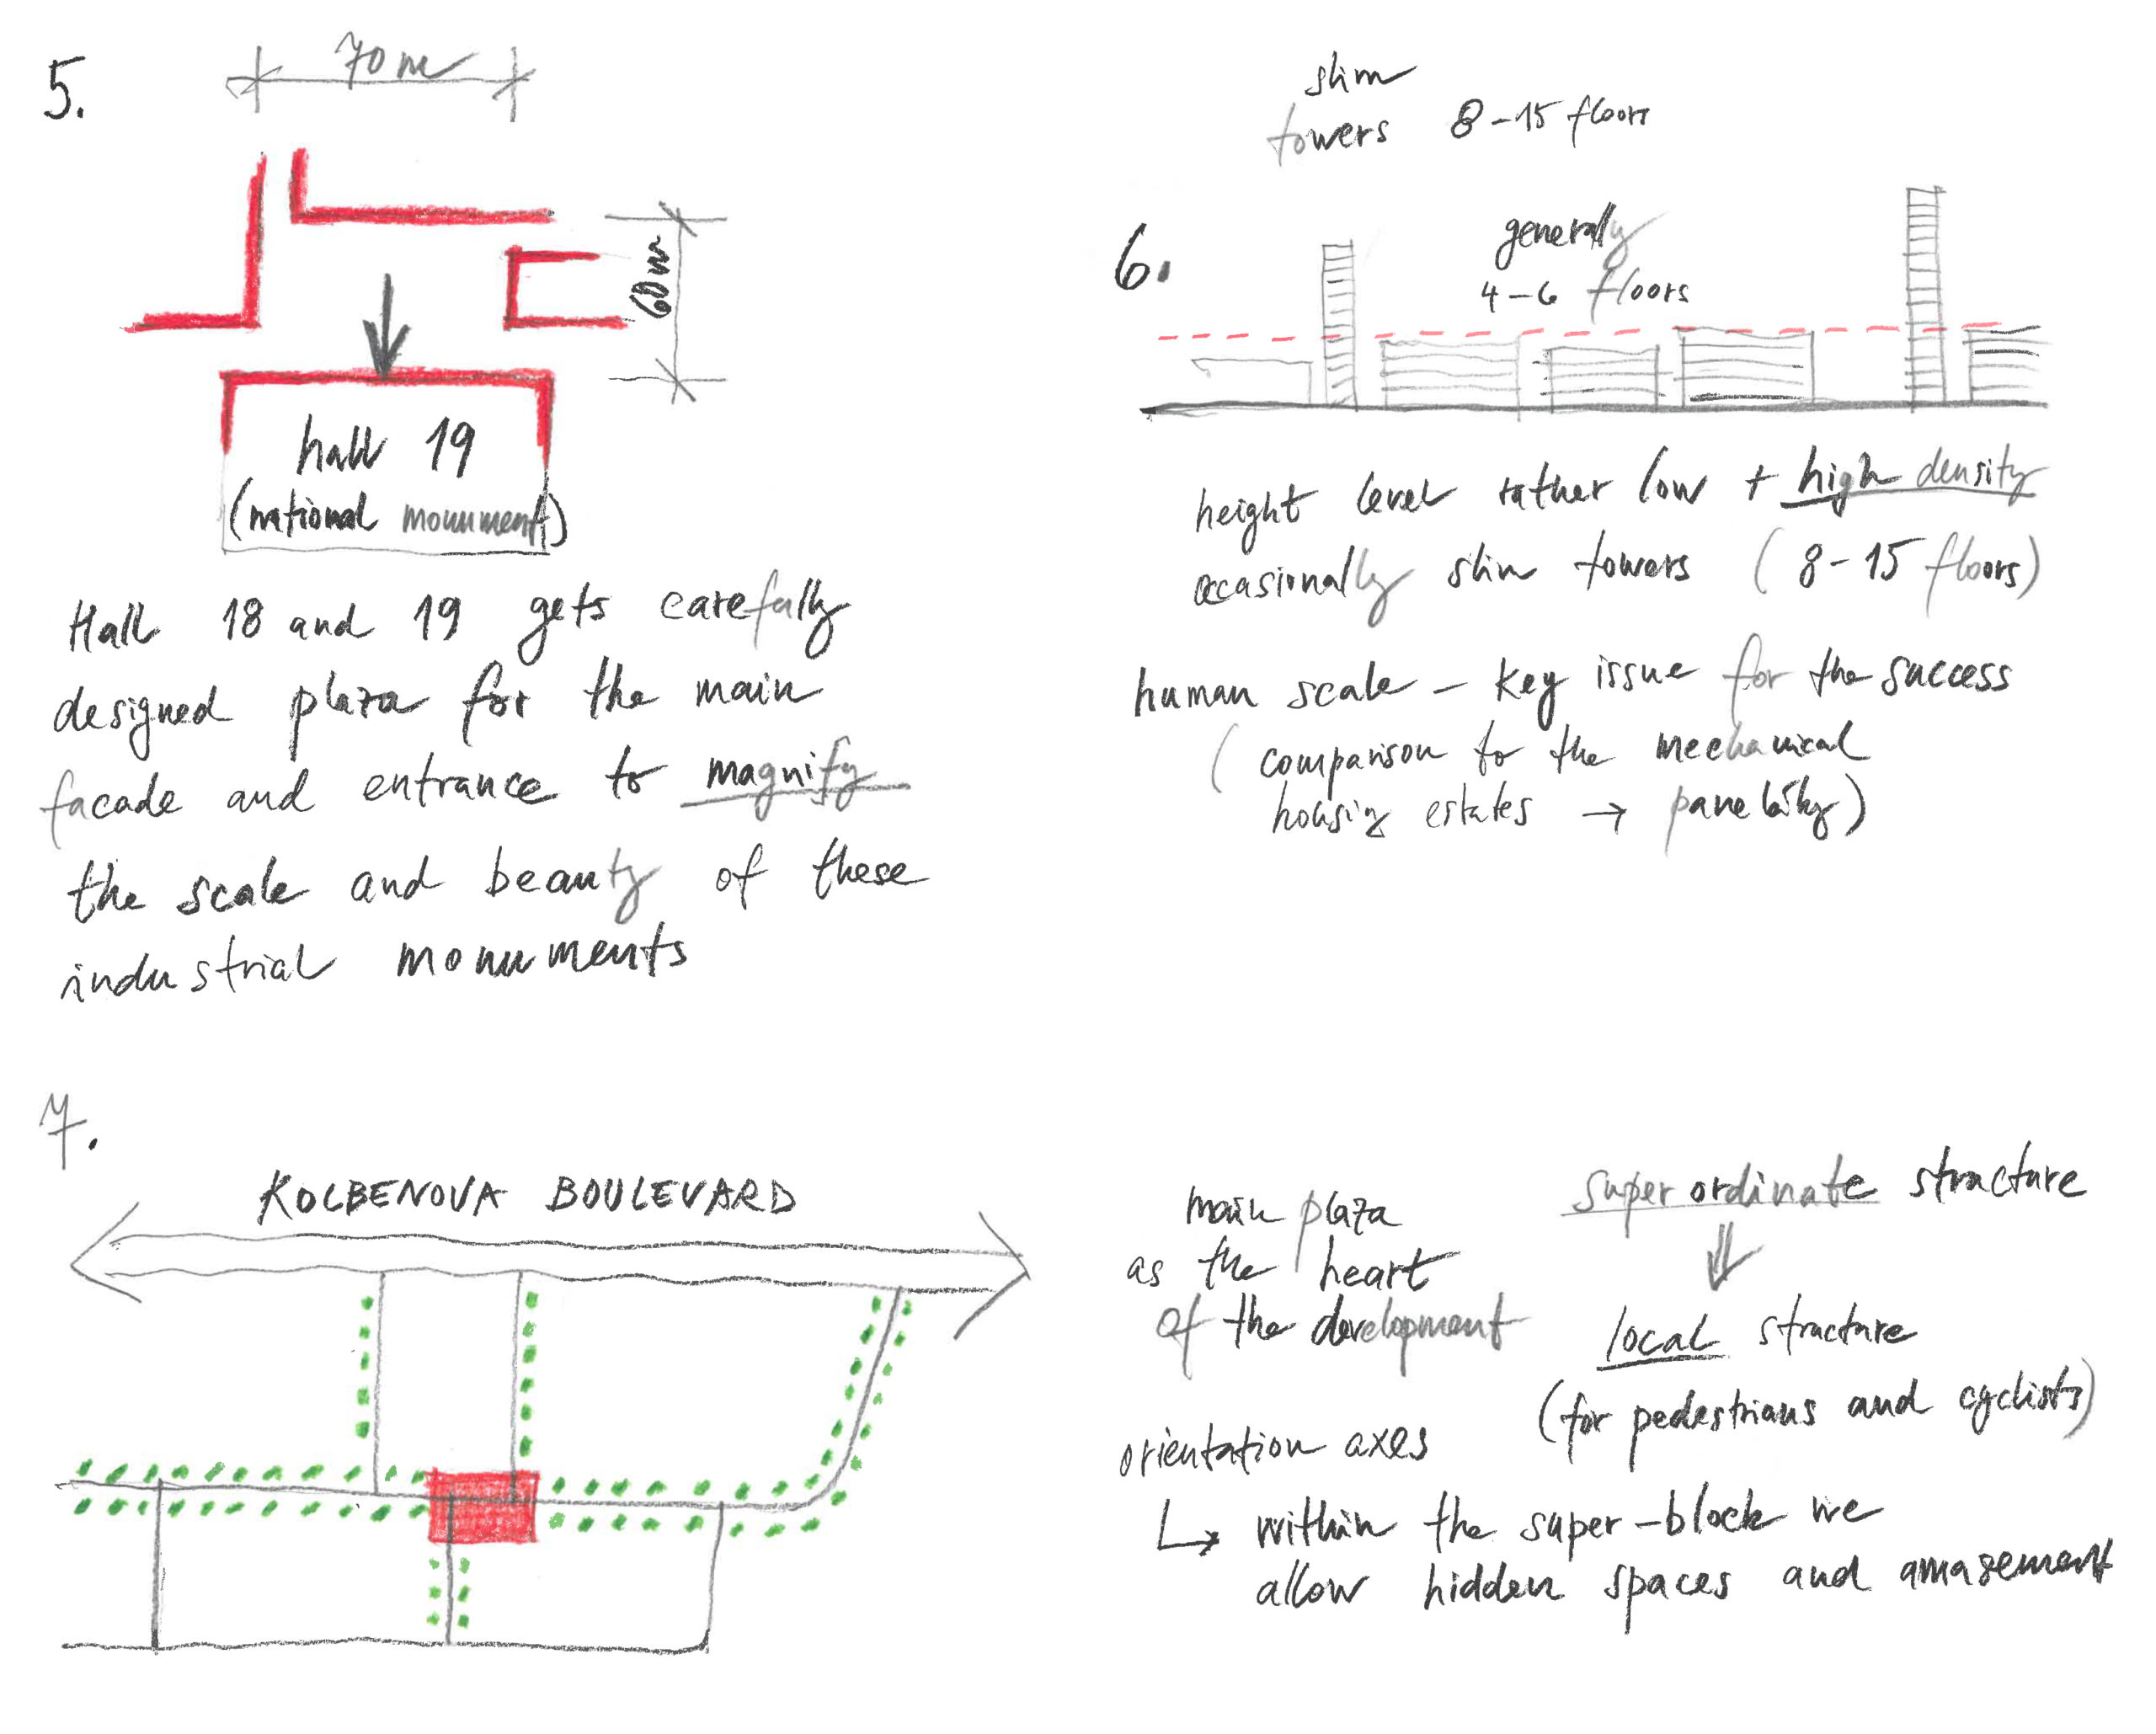 5.
70 m
60 m
hall 19
(national monument)
Hall 18 and 19 gets carefully
designed plaza for the main
facade and entrance to magnify
the scale and beauty of these
industrial monuments
slim
towers 8-15 floors
6.
generally
4-6 floors
height level rather low + high density
occasionally slim towers (8-15 floors)
human scale - key issue for the success
(comparison to the mechanical
housing estates → paneláky)
7.
KOLBENOVA BOULEVARD
main plaza
as the heart
of the development
superordinate structure
⇓
local structure
(for pedestrians and cyclists)
orientation axes
↳ within the super-block we
allow hidden spaces and amazement